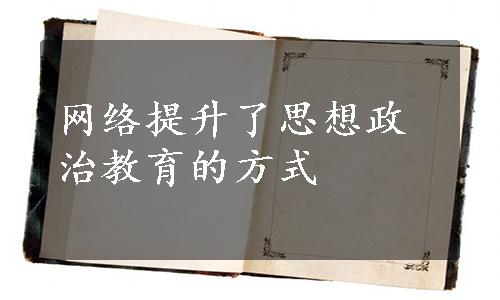 网络提升了思想政
治教育的方式